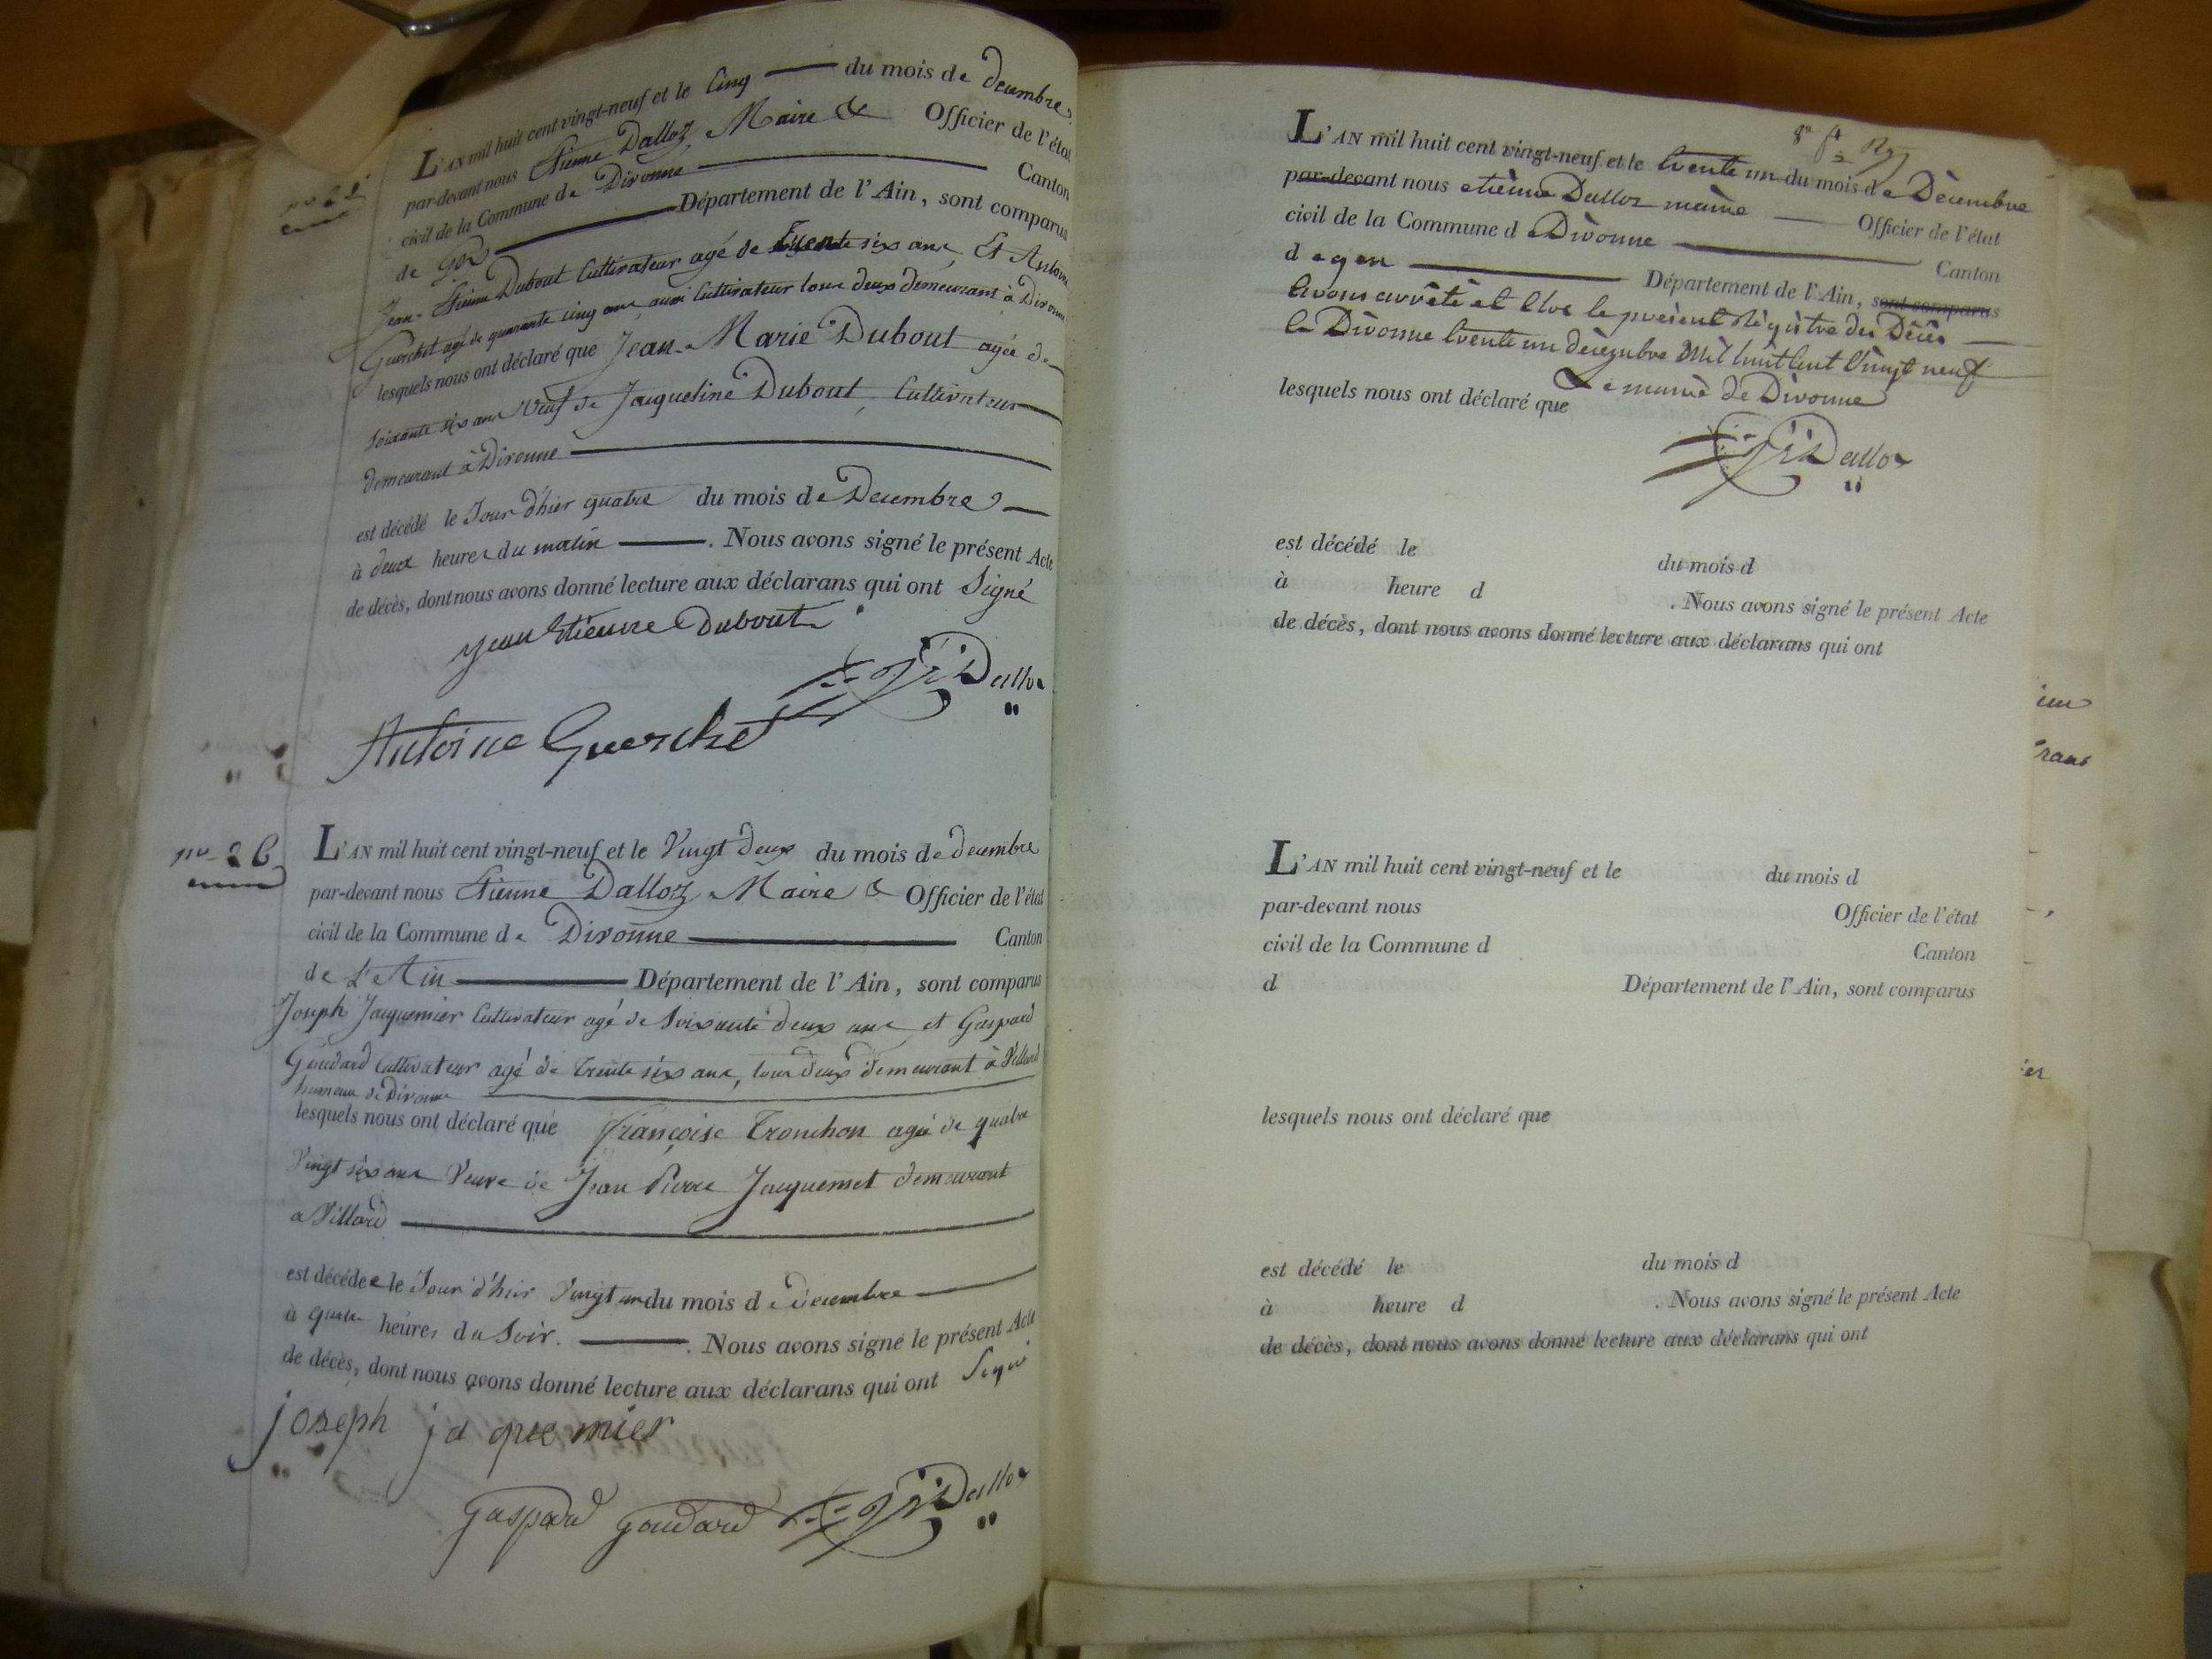 L'AN mil huit cent vingt-neuf et le Cinq du mois de Decembre
par-devant nous Etienne Dalloz, Maire & Officier de l'état
civil de la Commune de Divonne Canton
de Gex Département de l'Ain, sont comparus
Jean-Etienne Dubout Cultivateur agé de trente six ans, Et Antoine
Guerchet agé de quarante cinq ans, aussi Cultivateur tous deux demeurant à Divonne
lesquels nous ont déclaré que Jean-Marie Dubout agée de
soixante six ans Veuf de Jaqueline Dubout, Cultivateur
demeurant à Divonne
est décédé le Jour d'hier quatre du mois de Decembre
à deux heures du matin . Nous avons signé le présent Acte
de décès, dont nous avons donné lecture aux déclarans qui ont Signé
jean Etienne Dubout
Dalloz
Antoine Guerchet
no 26
L'AN mil huit cent vingt-neuf et le Vingt deux du mois de decembre
par-devant nous Etienne Dalloz, Maire & Officier de l'état
civil de la Commune de Divonne Canton
de L'Ain Département de l'Ain, sont comparus
Joseph Jaquemier Cultivateur agé de Soixante deux ans, et Gaspard
Goudard Cultivateur agé de trente six ans, tous deux demeurant à Villard
hameau de Divonne
lesquels nous ont déclaré que françoise Tronchon agée de quatre
Vingt six ans Veuve de Jean Pierre Jaquemet demeurant
a Villard
est décédée le Jour d'hier Vingt un du mois de Decembre
à quatre heures du Soir. . Nous avons signé le présent Acte
de décès, dont nous avons donné lecture aux déclarans qui ont Signé
joseph ja que mier
gaspard goudard Dalloz
L'AN mil huit cent vingt-neuf et le trente un du mois de Décembre
par-devant nous etiènne Dalloz maire Officier de l'état
civil de la Commune de Divonne Canton
de gex Département de l'Ain, sont comparus
Avons arrêté et Clos le présent Régistre des Décès
à Divonne trente un décembre Mil huit Cent Vingt neuf
Le maire de Divonne
lesquels nous ont déclaré que
Dalloz
est décédé le du mois d
à heure d . Nous avons signé le présent Acte
de décès, dont nous avons donné lecture aux déclarans qui ont
L'AN mil huit cent vingt-neuf et le du mois d
par-devant nous Officier de l'état
civil de la Commune d Canton
d Département de l'Ain, sont comparus
lesquels nous ont déclaré que
est décédé le du mois d
à heure d . Nous avons signé le présent Acte
de décès, dont nous avons donné lecture aux déclarans qui ont